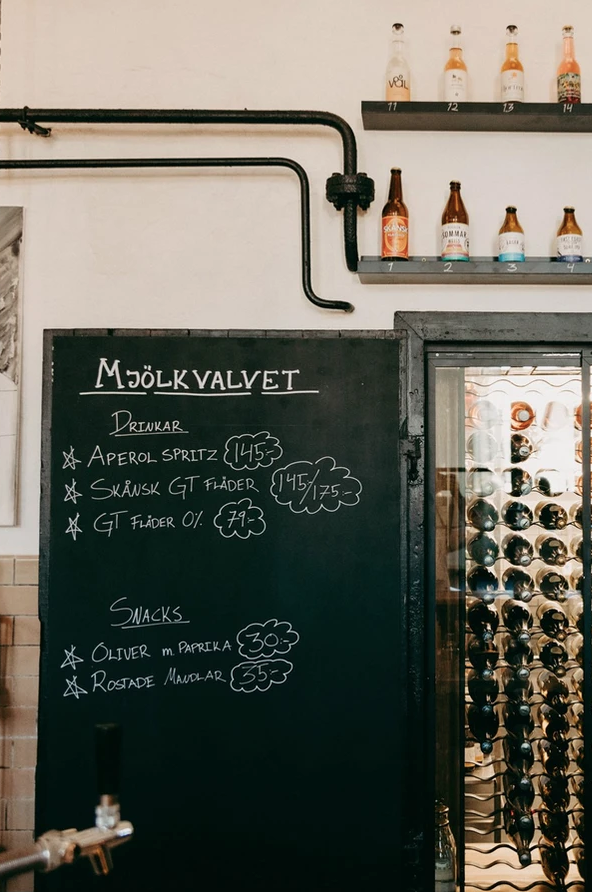 VÅL
11 12 13 14
SKÅNSK SOMMAR
1 2 3 4
MJÖLKVALVET
DRINKAR
APEROL SPRITZ 145:-
SKÅNSK GT FLÄDER 145/175:-
GT FLÄDER 0% 79:-
SNACKS
OLIVER m. PAPRIKA 30:-
ROSTADE MANDLAR 35:-